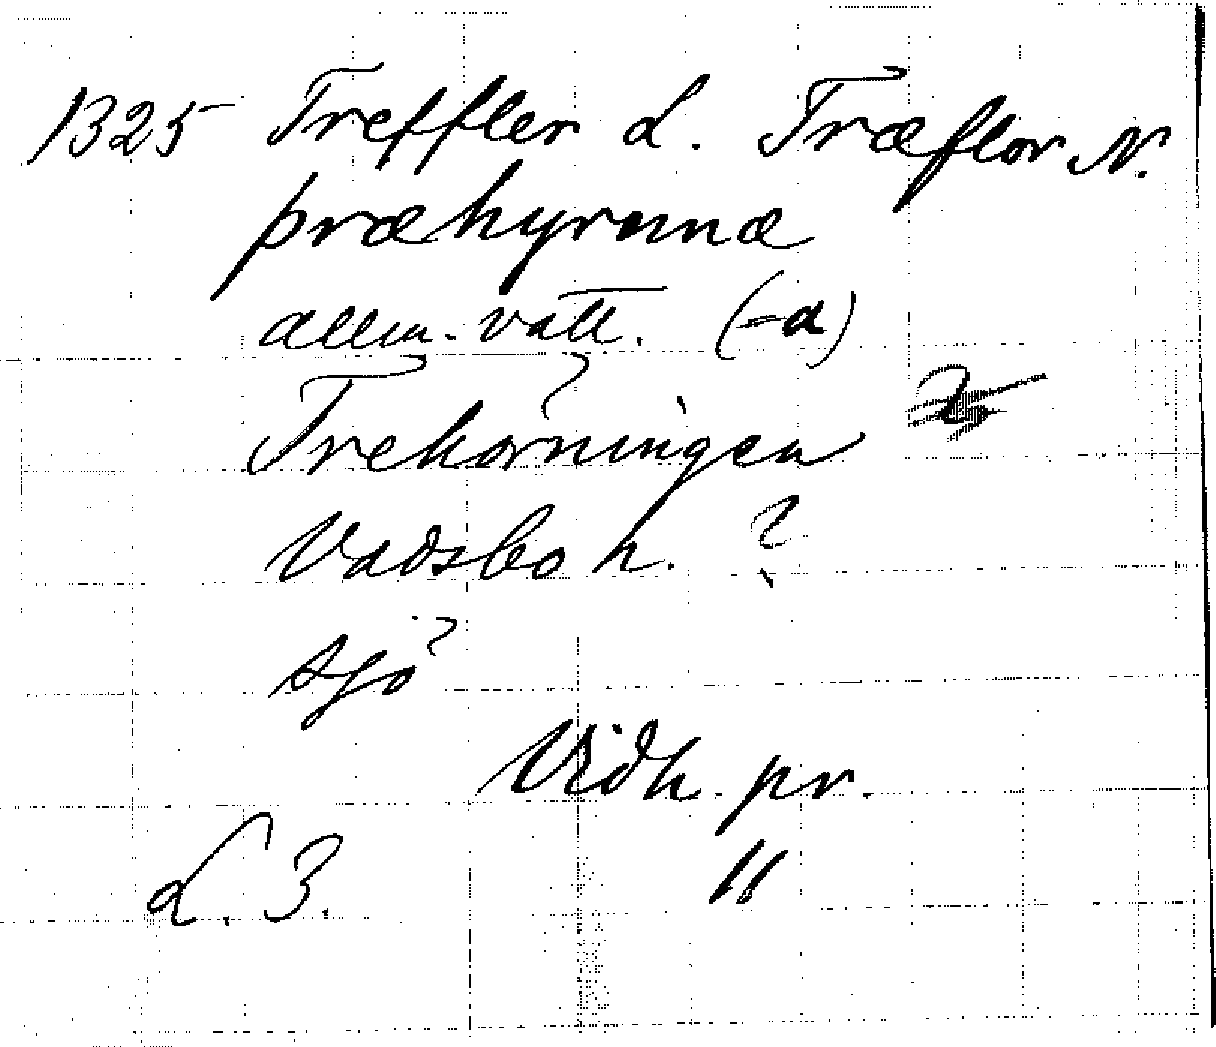 1325 Treffler L. Træflor N.
præhyrnnæ
allm. vatt. (-a)
Trehörningen
Vadsbo h. ?
sjö
Vidh. pr.
L. 3. "